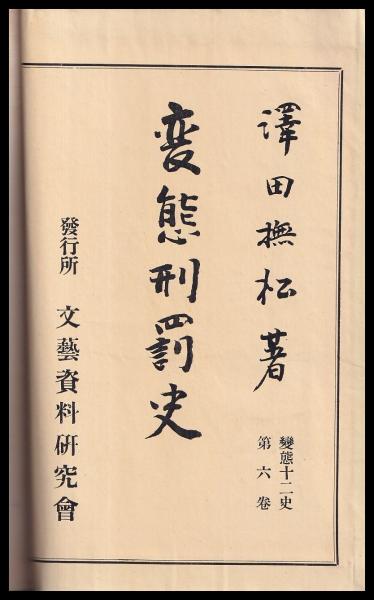 澤田撫松著
變態十二史
第六卷
変態刑罰史
發行所 文藝資料研究會